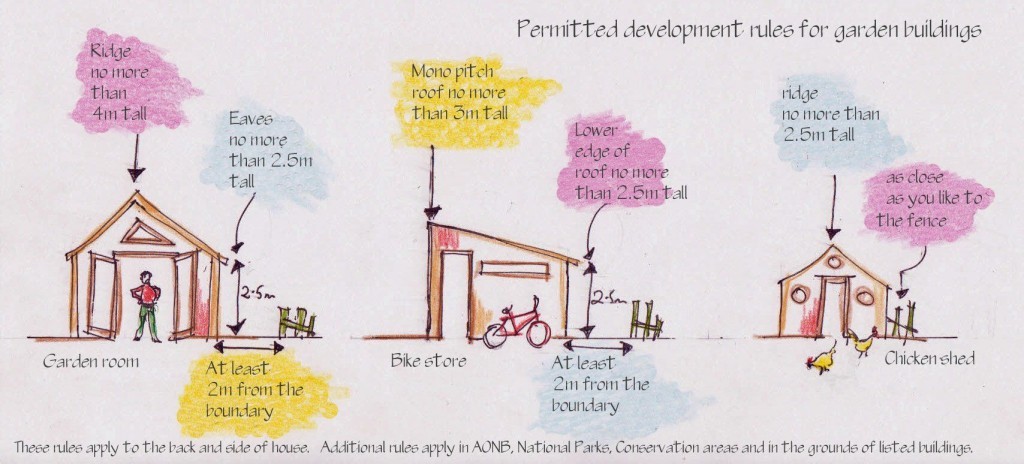 Permitted development rules for garden buildings
Ridge
no more
than
4m tall
Eaves
no more
than 2.5m
tall
2.5m
Garden room
At least
2m from the
boundary
Mono pitch
roof no more
than 3m tall
Lower
edge of
roof no more
than 2.5m tall
2.5m
Bike store
At least
2m from the
boundary
ridge
no more than
2.5m tall
as close
as you like to
the fence
Chicken shed
These rules apply to the back and side of house. Additional rules apply in AONB, National Parks, Conservation areas and in the grounds of listed buildings.